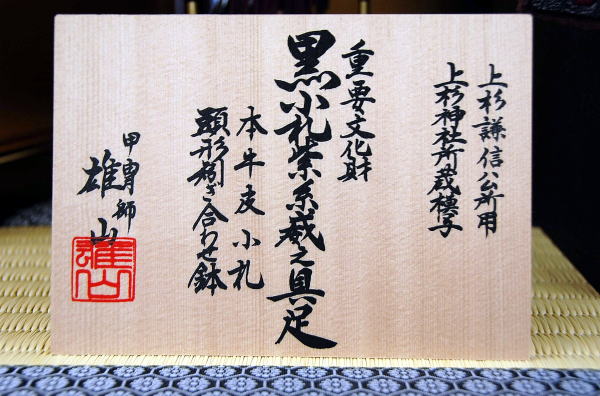 上杉謙信公所用
上杉神社所蔵模写
重要文化財
黒小札紫糸威之具足
本牛皮小札
頭形矧き合わせ鉢
甲冑師
雄山
雄山